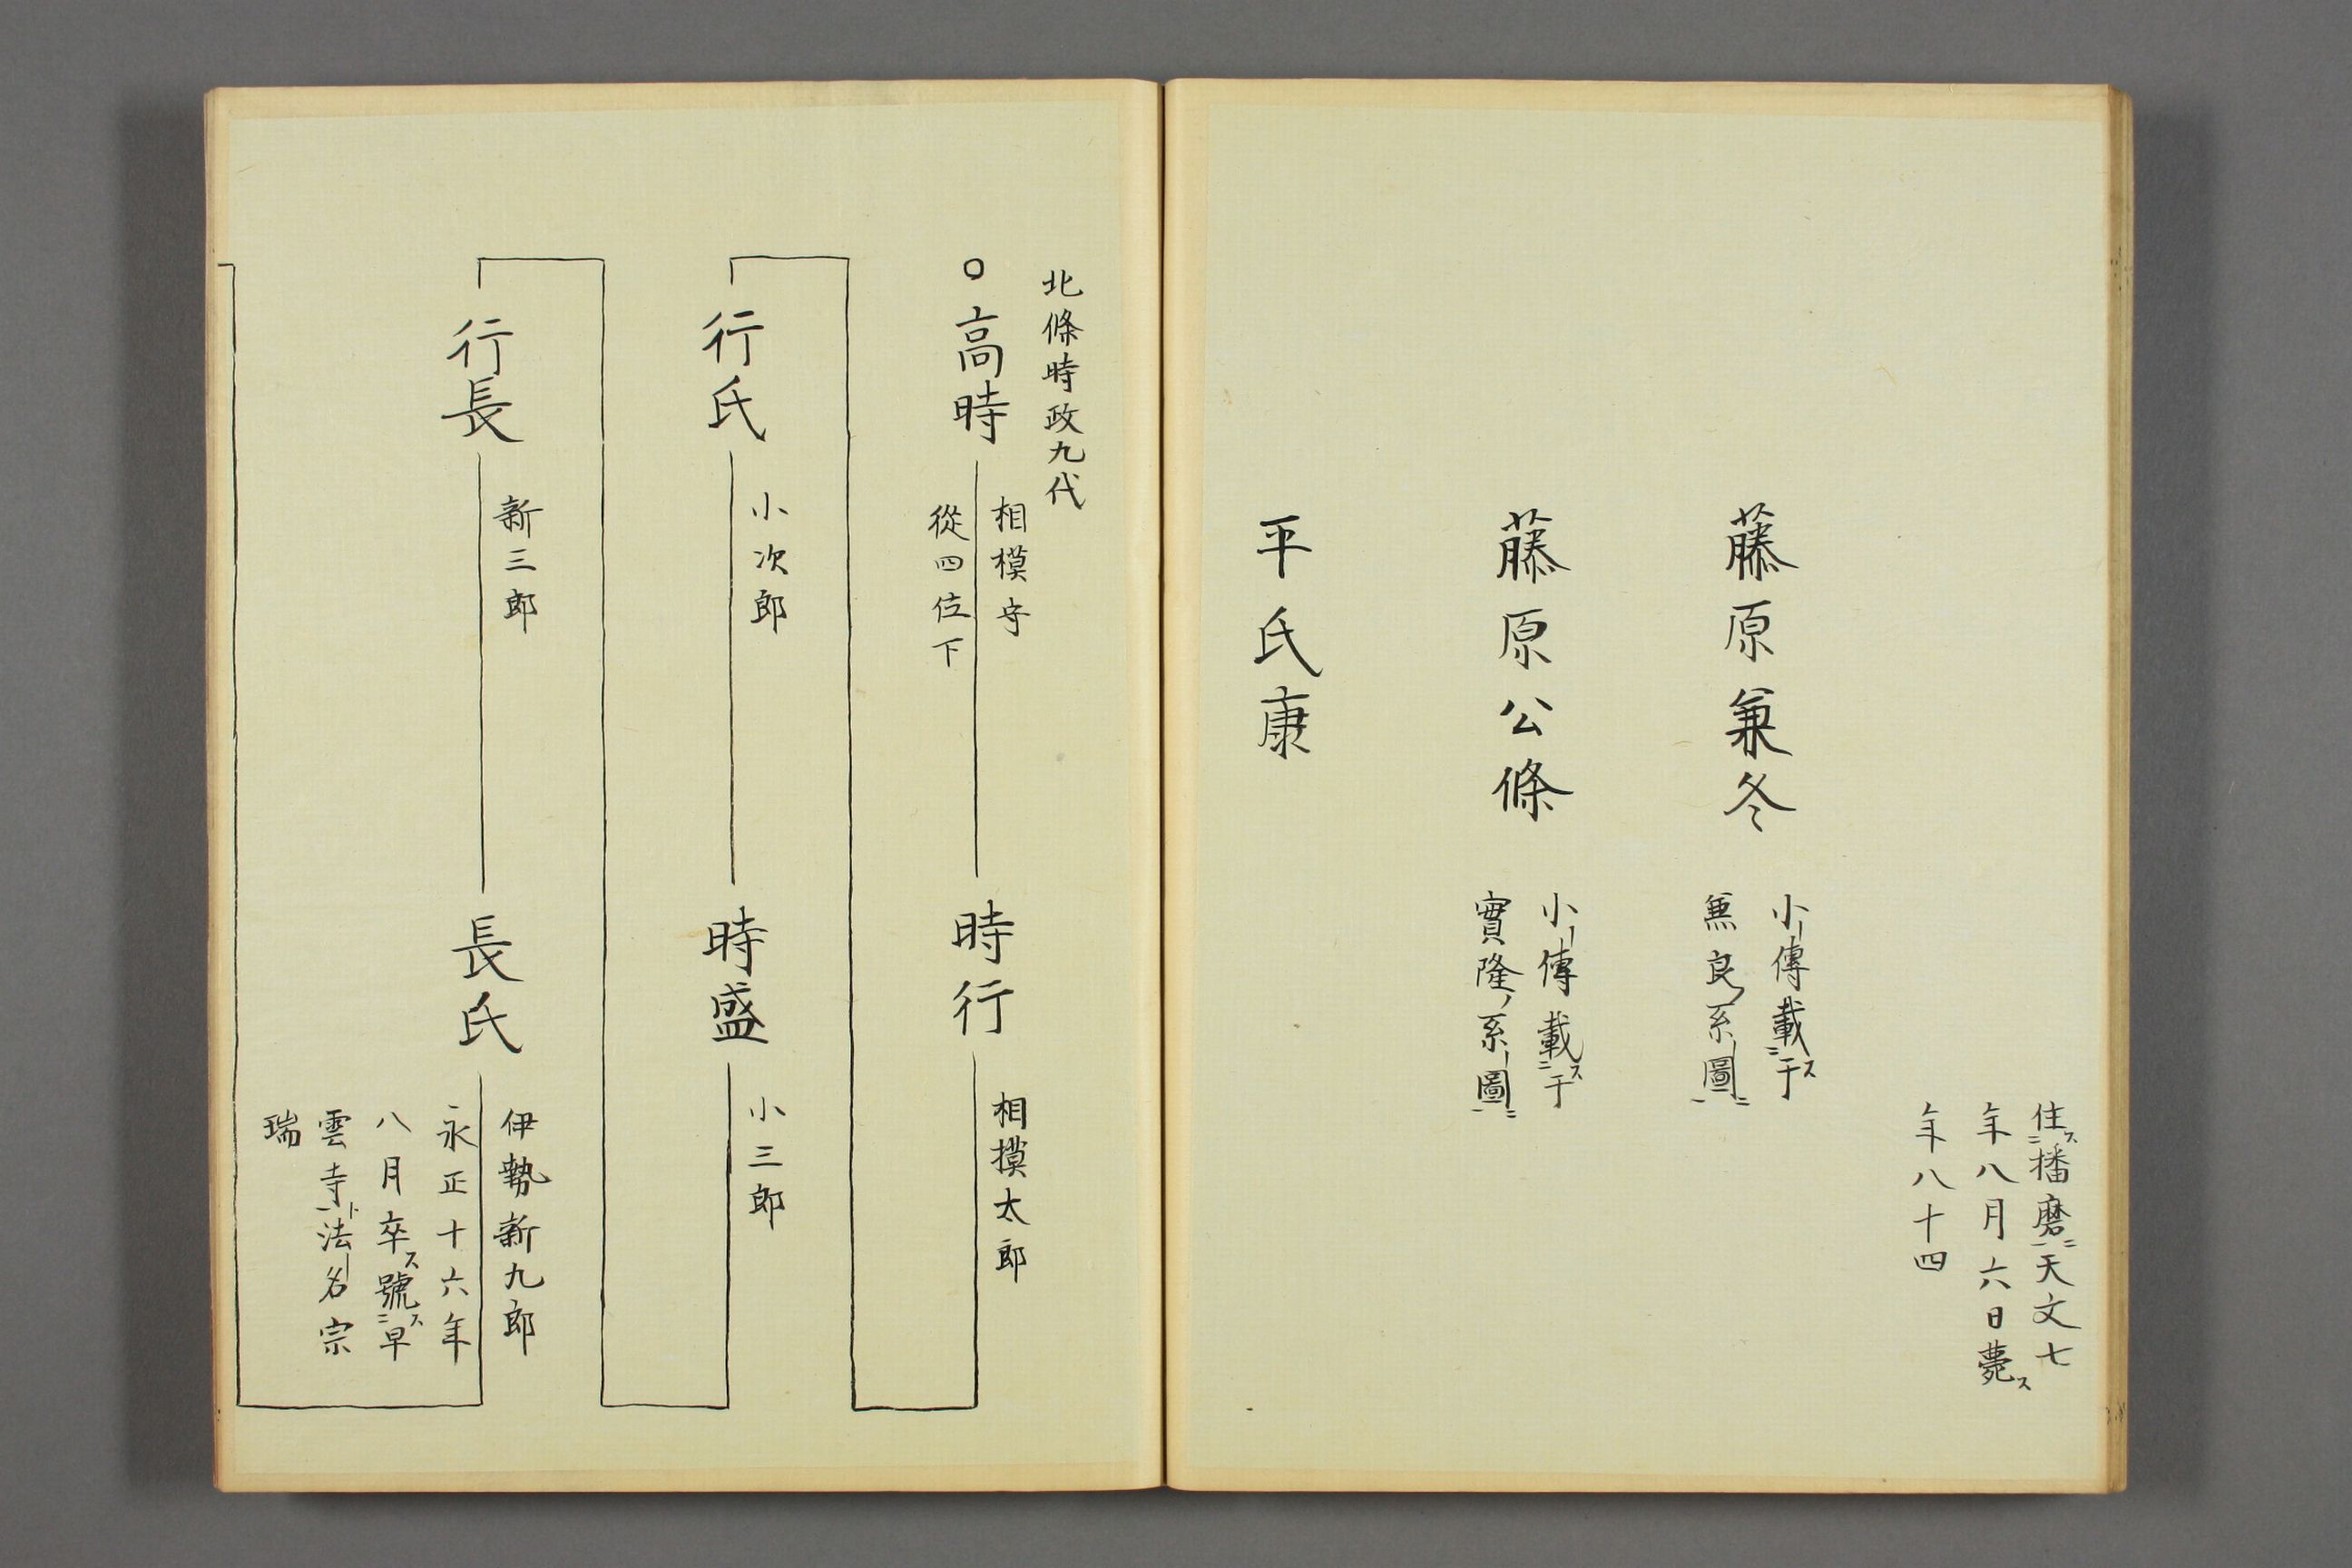 住ス播磨ニ天文七
年八月六日薨ス
年八十四
藤原兼冬
小傳載ス于
兼良ノ系圖ニ
藤原公條
小傳載ス于
實隆ノ系圖ニ
平氏康
北條時政九代
○高時
相模守
從四位下
時行
相摸太郎
行氏
小次郎
時盛
小三郎
行長
新三郎
長氏
伊勢新九郎
永正十六年
八月卒ス號ス早
雲寺ト法名宗
瑞